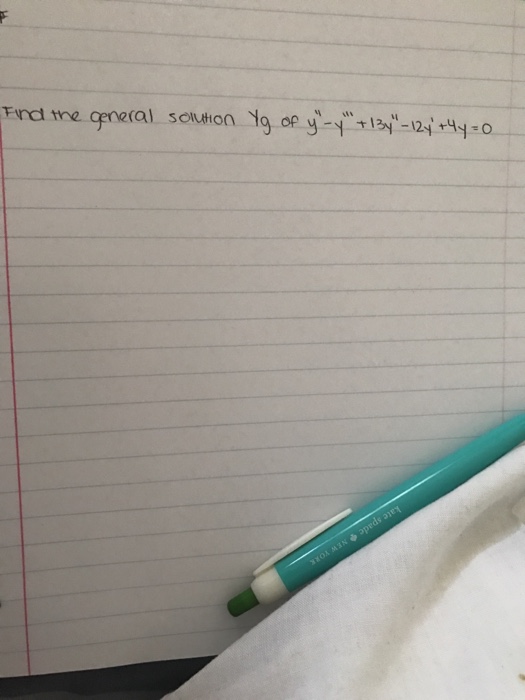 Find the general solution Yg of y''-y'''+13y''-12y'+4y=0
kate spade ♠ NEW YORK